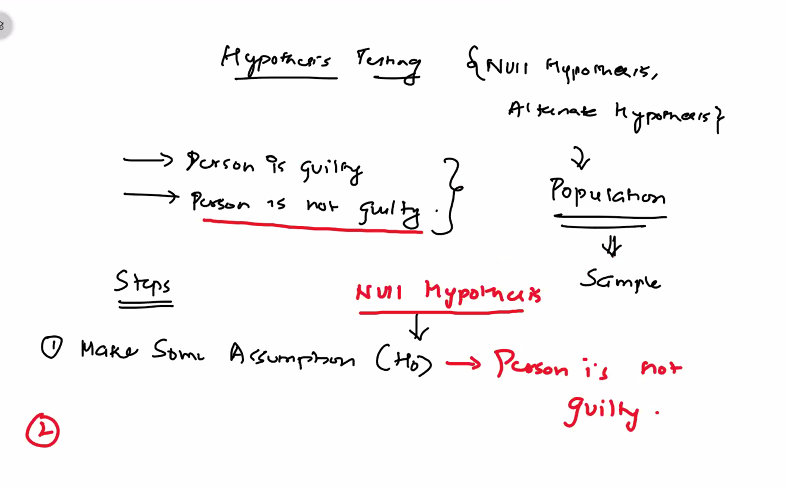 Hypothesis Testing {Null Hypothesis,
Alternate Hypothesis}
→ Person is guilty
→ Person is not guilty.
Population
Sample
Steps
Null Hypothesis
① Make Some Assumption (H0) → Person is not
guilty.
②